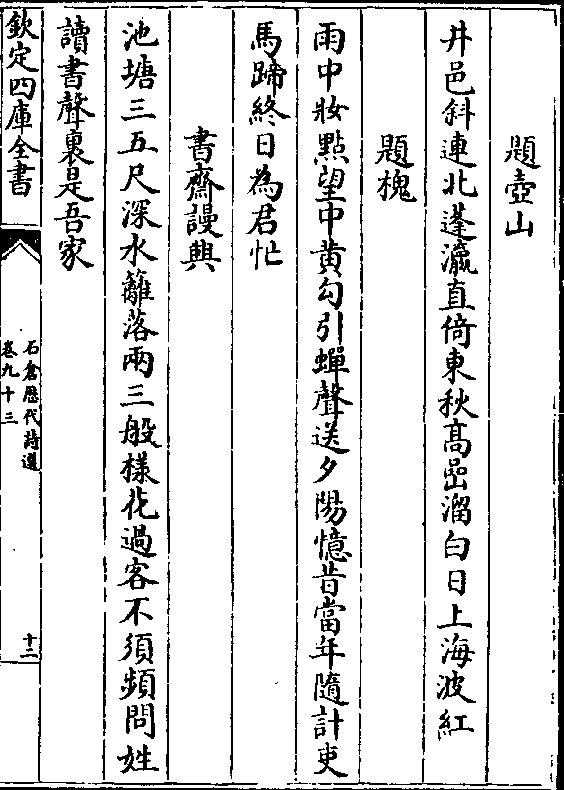 題壺山
井邑斜連北蓬瀛直倚東秋髙嵒溜白日上海波紅
題槐
雨中妝點望中黄勾引蟬聲送夕陽憶昔當年隨計吏
馬蹄終日為君忙
書齋謾興
池塘三五尺深水籬落兩三般樣花過客不須頻問姓
讀書聲裏是吾家
欽定四庫全書
石倉歴代詩選
卷九十三
十二